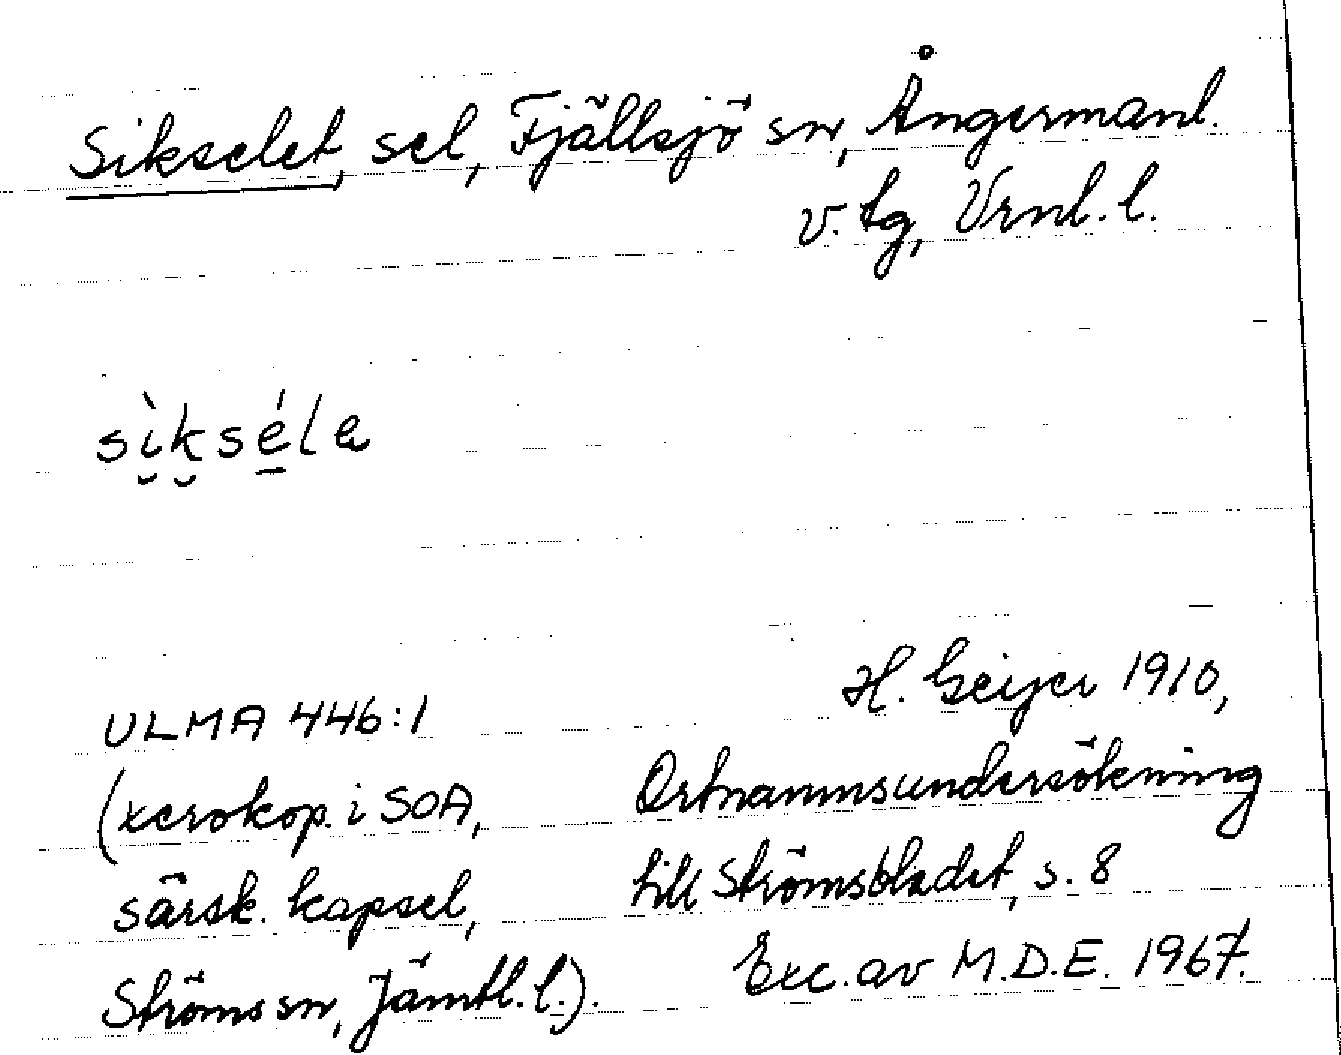 Sikselet, sel, Fjällsjö sn, Ångermanl.
v. tg, Vrnl. l.
sìkséla
H. Geijer 1910,
ULMA 446:1
(xerokop. i SOA,
särsk. kapsel,
Ströms sn, Jämtl. l.).
Ortnamnsundersökning
till Strömsbladet, s. 8
Exc. av M.D.E. 1967.